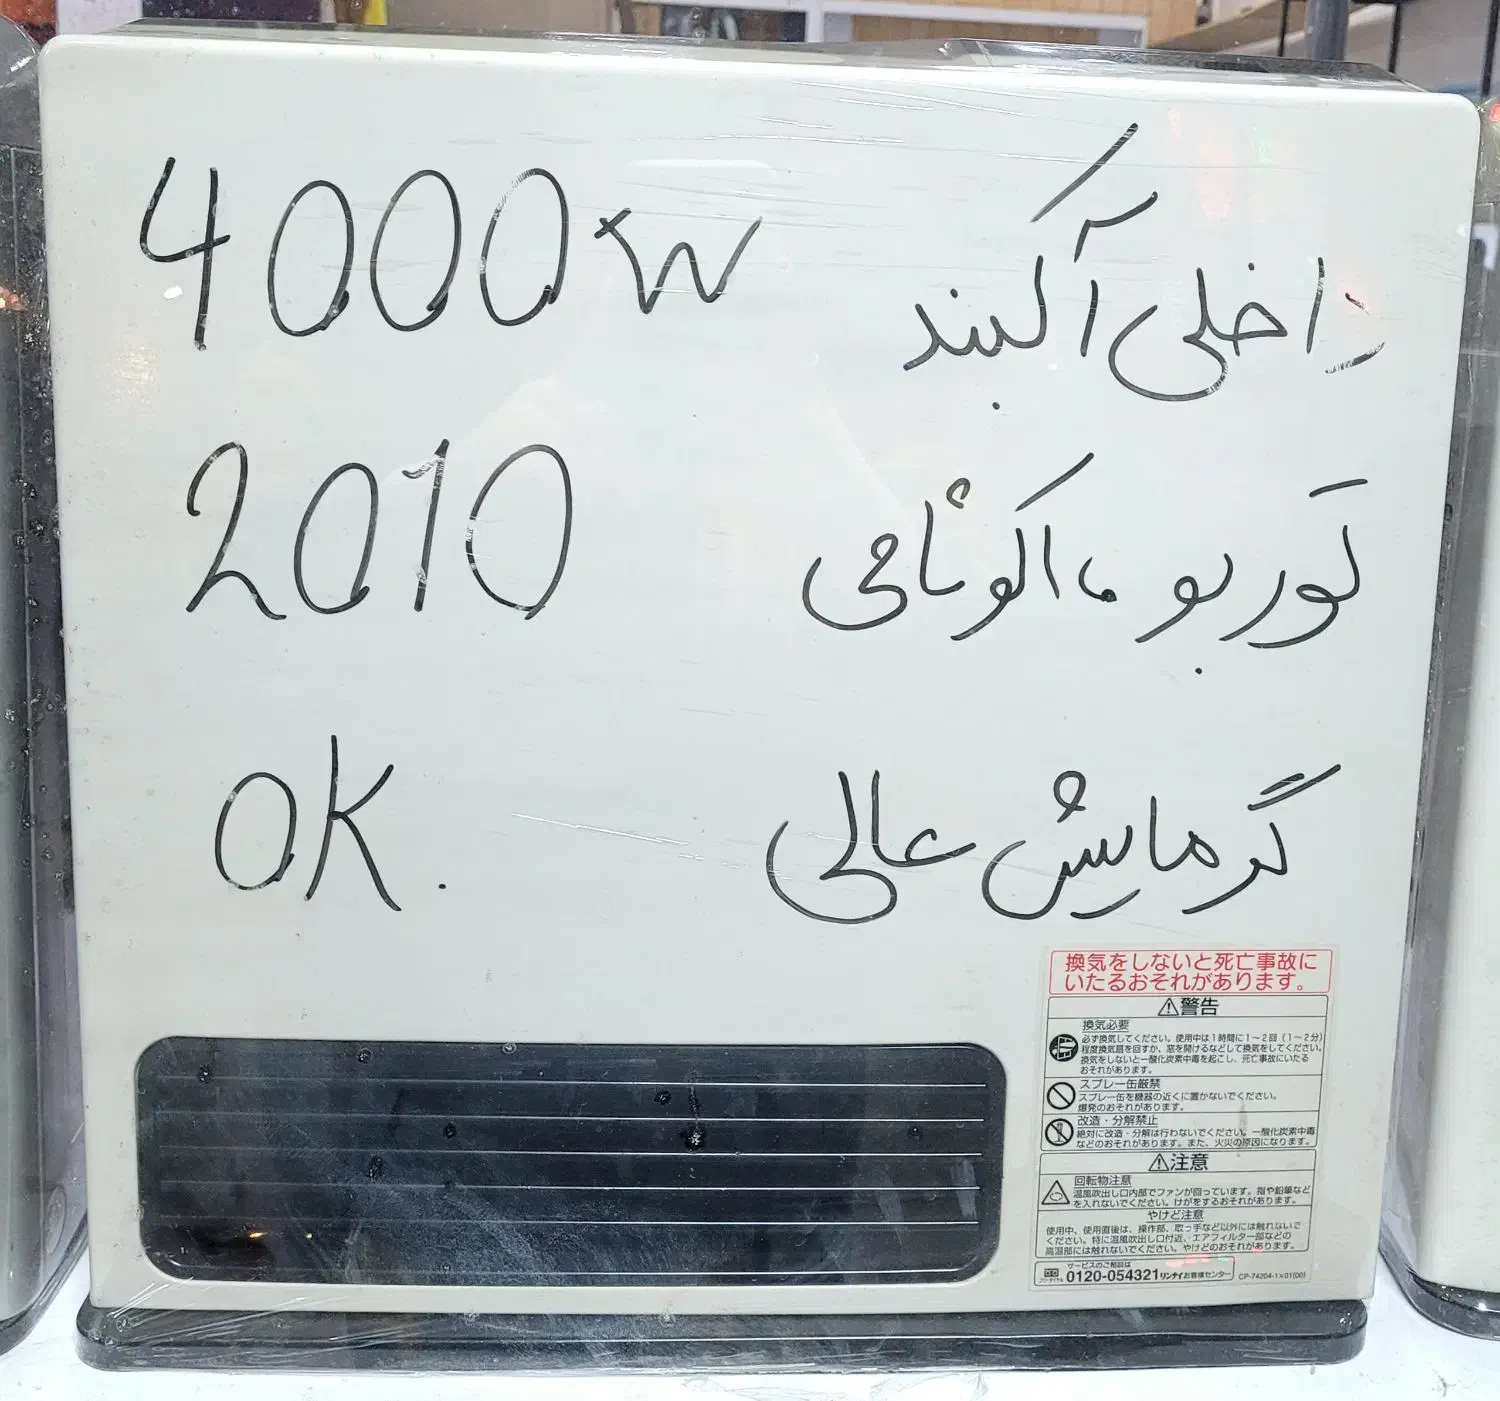 4000W
داخلی آکبند
2010
توربو، اکونامی
OK.
گرمایش عالی
換気をしないと死亡事故に
いたるおそれがあります。
⚠警告
換気必要
必ず換気してください。使用中は1時間に1~2回(1~2分)
程度換気扇を回すか、窓を開けるなどして換気をしてください。
換気をしないと一酸化炭素中毒を起こし、死亡事故にいたる
おそれがあります。
スプレー缶厳禁
スプレー缶を機器の近くに置かないでください。
爆発のおそれがあります。
改造・分解禁止
絶対に改造・分解は行わないでください。一酸化炭素中毒
などのおそれがあります。また、火災の原因になります。
⚠注意
回転物注意
温風吹出し口内部でファンが回っています。指や鉛筆など
を入れないでください。けがをするおそれがあります。
やけど注意
使用中、使用直後は、操作部、取っ手など以外には触れないで
ください。特に温風吹出し口付近、エアフィルター部などの
高温部には触れないでください。やけどのおそれがあります。
サービスのご相談は
フリーダイヤル 0120-054321 リンナイお客様センター
CP-74204-1×01(00)